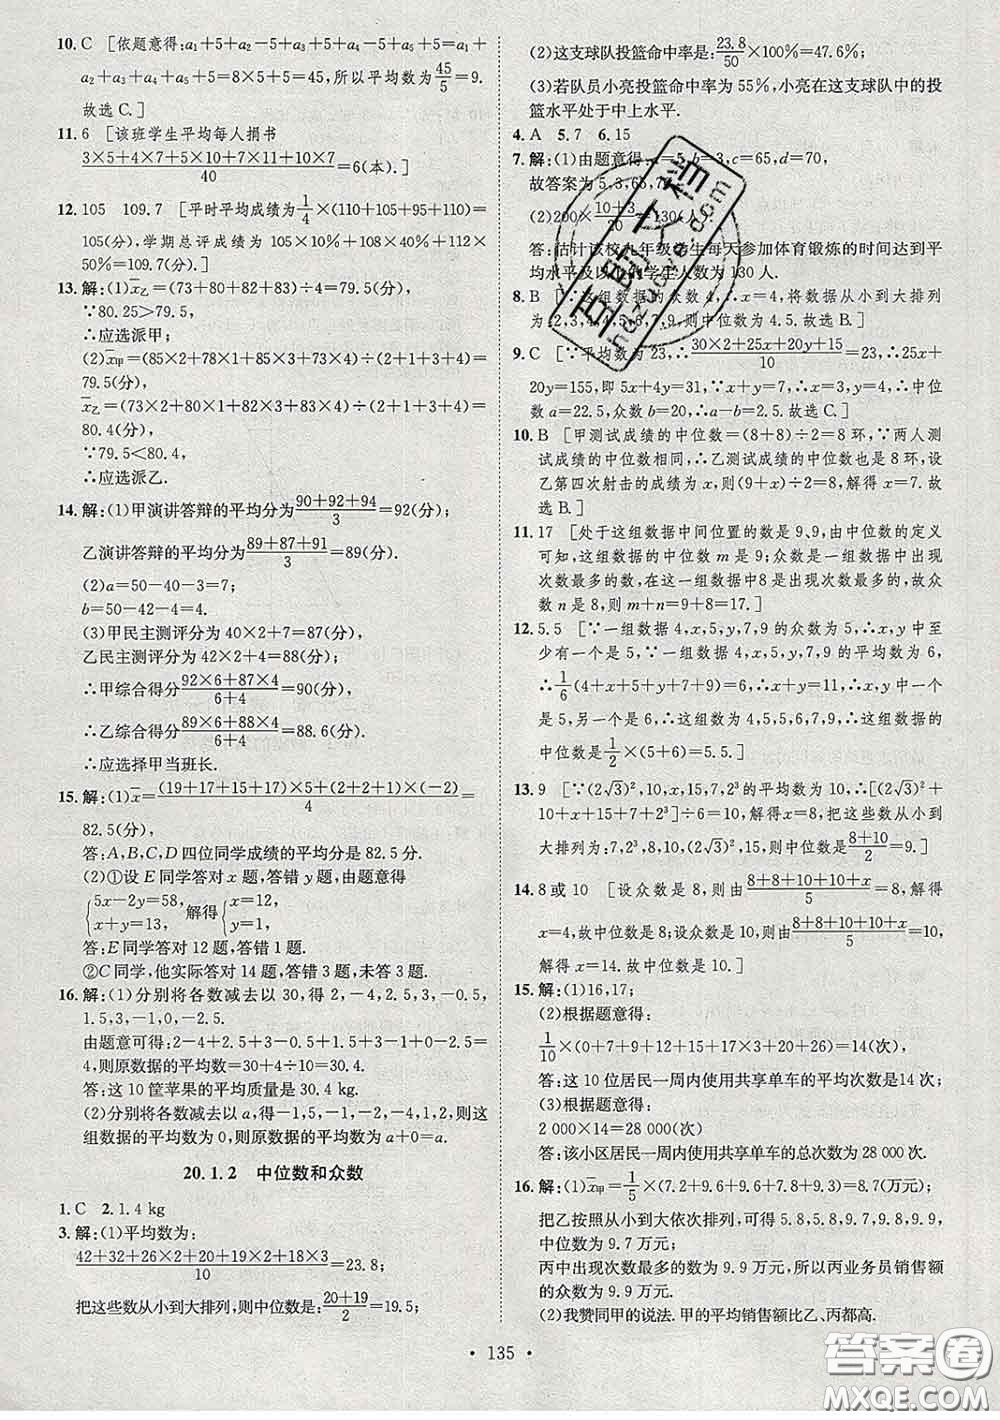 10. C [依题意得:a₁+5+a₂-5+a₃+5+a₄-5+a₅+5=a₁+
a₂+a₃+a₄+a₅+5=8×5+5=45,所以平均数为45/5=9.
故选C.]
11. 6 [该班学生平均每人捐书
(3×5+4×7+5×10+7×11+10×7)/40=6(本).]
12. 105 109.7 [平时平均成绩为1/4×(110+105+95+110)=
105(分),学期总评成绩为 105×10%+108×40%+112×
50%=109.7(分).]
13. 解:(1)x̄乙=(73+80+82+83)÷4=79.5(分),
∵80.25>79.5,
∴应选派甲;
(2)x̄甲=(85×2+78×1+85×3+73×4)÷(2+1+3+4)=
79.5(分),
x̄乙=(73×2+80×1+82×3+83×4)÷(2+1+3+4)=
80.4(分),
∵79.5<80.4,
∴应选派乙.
14. 解:(1)甲演讲答辩的平均分为(90+92+94)/3=92(分),
乙演讲答辩的平均分为(89+87+91)/3=89(分).
(2)a=50-40-3=7;
b=50-42-4=4.
(3)甲民主测评分为 40×2+7=87(分),
乙民主测评分为 42×2+4=88(分),
∴甲综合得分(92×6+87×4)/(6+4)=90(分),
∴乙综合得分(89×6+88×4)/(6+4)=88.6(分).
∴应选择甲当班长.
15. 解:(1)x̄=((19+17+15+17)×5+(2+2+1)×(-2))/4=
82.5(分).
答:A,B,C,D四位同学成绩的平均分是 82.5分.
(2)①设E同学答对x题,答错y题,由题意得
{5x-2y=58, x+y=13, 解得{x=12, y=1,
答:E同学答对 12 题,答错 1 题.
②C同学,他实际答对 14 题,答错 3 题,未答 3 题.
16. 解:(1)分别将各数减去以 30,得 2,-4,2.5,3,-0.5,
1.5,3,-1,0,-2.5.
由题意可得:2-4+2.5+3-0.5+1.5+3-1+0-2.5=
4,则原数据的平均数=30+4÷10=30.4.
答:这 10 筐苹果的平均质量是 30.4 kg.
(2)分别将各数减去以a,得-1,-2,0,-4,1,2,则这
组数据的平均数为0,则原数据的平均数为a+0=a.
20.1.2 中位数和众数
1. C 2. 1.4 kg
3. 解:(1)平均数为:
(42+32+26×2+20+19×2+18×3)/10=23.8,
把这些数从小到大排列,则中位数是:(20+19)/2=19.5;
(2)这支球队投篮命中率是:23.8/50×100%=47.6%;
(3)若队员小亮投篮命中率为 55%,小亮在这支球队中的投
篮水平处于中上水平.
4. A 5. 7 6. 15
7. 解:(1)由题意得:a=5,b=3,c=65,d=70,
故答案为 5,3,65,70.
(2)200×(10+3)/20=130(人).
答:估计该校九年级男生每天参加体育锻炼的时间达到平
均水平及以上的学生人数为 130 人.
8. B [∵这组数据的众数 4,∴x=4,将数据从小到大排列
为:2,3,4,4,5,6,7,9,则中位数为 4.5.故选B.]
9. C [∵平均数为 23,∴(30×2+25x+20y+15)/10=23,∴25x+
20y=155,即 5x+4y=31,∵x+y=7,∴x=3,y=4,∴中位
数a=22.5,众数b=20,∴a-b=2.5.故选C.]
10. B [甲测试成绩的中位数=(8+8)÷2=8 环,∵两人测
试成绩的中位数相同,∴乙测试成绩的中位数也是8环,设
乙第四次射击的成绩为x,则(9+x)÷2=8,解得x=7.故
选B.]
11. 17 [处于这组数据中间位置的数是9、9,由中位数的定义
可知,这组数据的中位数m是9;众数是一组数据中出现
次数最多的数,在这一组数据中8是出现次数最多的,故众
数n是8,则m+n=9+8=17.]
12. 5.5 [∵一组数据 4,x,5,y,7,9 的众数为 5,∴x,y中至
少有一个是 5,∵一组数据 4,x,5,y,7,9 的平均数为 6,
∴1/6(4+x+5+y+7+9)=6,∴x+y=11,∴x,y中一个
是5,另一个是 6,∴这组数为 4,5,5,6,7,9,∴这组数据的
中位数是1/2×(5+6)=5.5.]
13. 9 [∵(2√3)²,10,x,15,7,2³的平均数为 10,∴[(2√3)²+
10+x+15+7+2³]÷6=10,解得x=8,把这些数从小到大
排列为:7,2³,8,10,(2√3)²,15,则中位数是(8+10)/2=9.]
14. 8或 10 [设众数是 8,则由(8+8+10+10+x)/5=8,解得
x=4,故中位数是 8;设众数是 10,则由(8+8+10+10+x)/5=10,
解得x=14.故中位数是 10.]
15. 解:(1)16,17;
(2)根据题意得:
1/10×(0+7+9+12+15+17×3+20+26)=14(次),
答:这 10 位居民一周内使用共享单车的平均次数是14 次;
(3)根据题意得:
2 000×14=28 000(次)
答:该小区居民一周内使用共享单车的总次数为 28 000 次.
16. 解:(1)x̄甲=1/5×(7.2+9.6+9.6+7.8+9.3)=8.7(万元),
把乙按照从小到大依次排列,可得 5.8,5.8,9.7,9.8,9.9,
中位数为 9.7 万元;
丙中出现次数最多的数为 9.9 万元,所以丙业务员销售额
的众数为 9.9 万元.
(2)我赞同甲的说法.甲的平均销售额比乙、丙都高.
135
答案圈
MXQE.COM